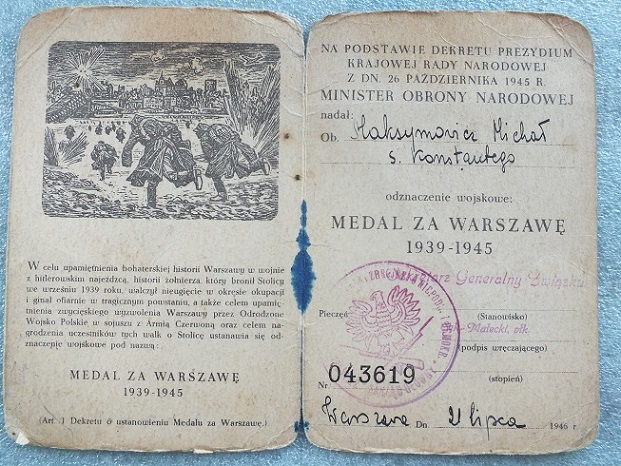 W celu upamiętnienia bohaterskiej historii Warszawy w wojnie
z hitlerowskim najeźdzcą, historii żołnierza który bronił Stolicy
we wrześniu 1939 roku, walczył nieugięcie w okresie okupacji
i ginął ofiarnie w tragicznym powstaniu, a także celem upamię-
tnienia zwycięskiego wyzwolenia Warszawy przez Odrodzone
Wojsko Polskie w sojuszu z Armią Czerwoną oraz celem na-
grodzenia uczestników tych walk o Stolicę ustanawia się od-
znaczenie wojskowe pod nazwą:
MEDAL ZA WARSZAWĘ
1939-1945
(Art. 1 Dekretu o ustanowieniu Medalu za Warszawę.)
NA PODSTAWIE DEKRETU PREZYDIUM
KRAJOWEJ RADY NARODOWEJ
Z DN. 26 PAŹDZIERNIKA 1945 R.
MINISTER OBRONY NARODOWEJ
nadał:
Ob. Maksymowicz Michał
s. Konstantego
odznaczenie wojskowe:
MEDAL ZA WARSZAWĘ
1939-1945
Generalny Związku
Pieczęć (Stanowisko)
Małecki, płk.
(podpis wręczającego)
Nr 043619 (stopień)
Warszawa Dn. 21 lipca 1946 r.